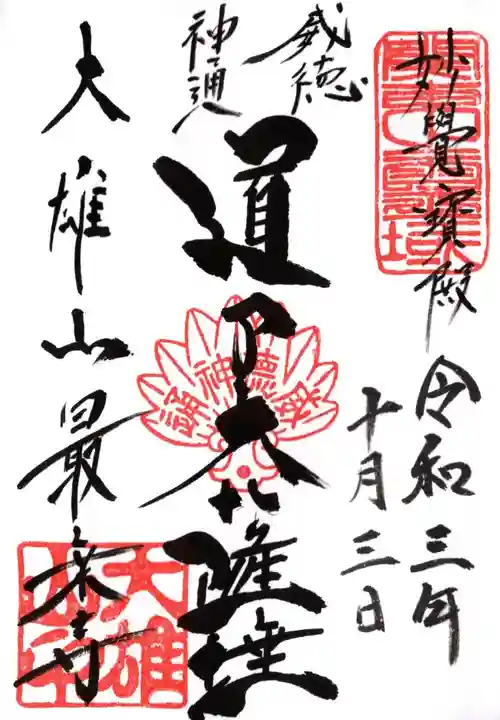 妙覺寶殿
令和三年
十月三日
威徳
神通
道了大薩埵
大雄山最乗寺
威徳神通
大雄
山印